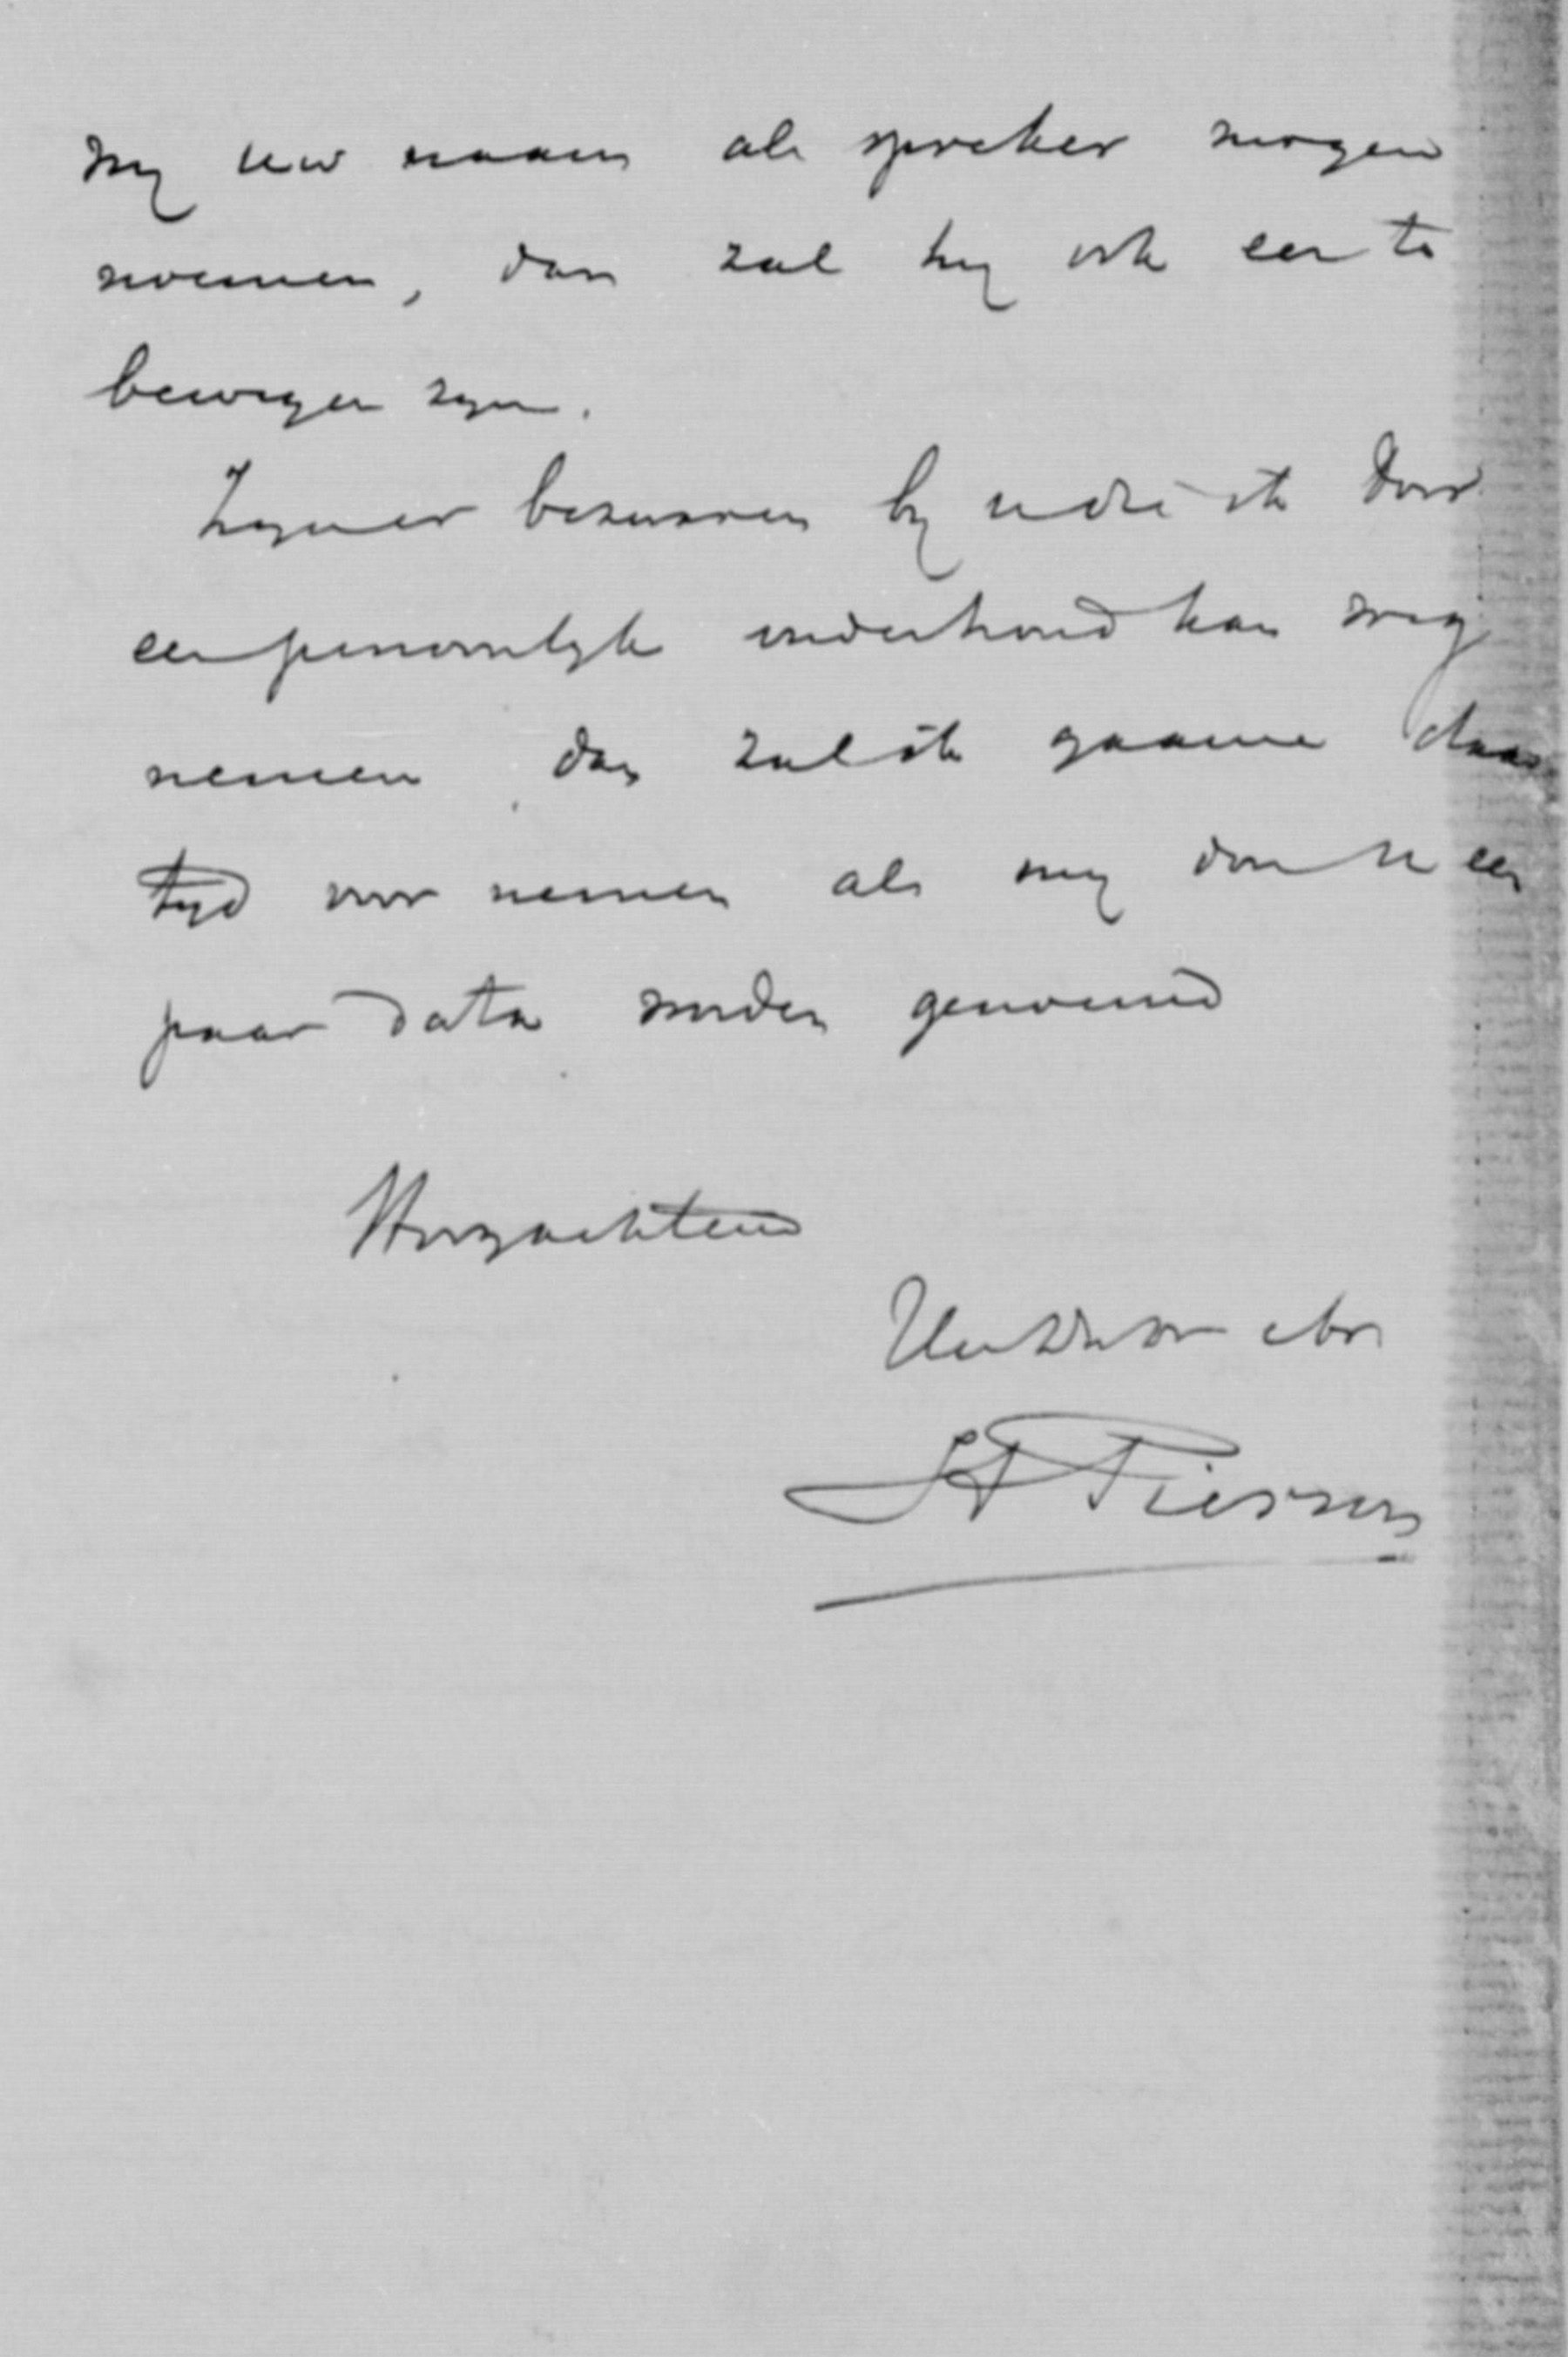 wy uw naam als spreker mogen
noemen, dan zal hy ook eer te
bewegen zyn.
Zyn er bezwaren by u die ik door
een persoonlyk onderhoud kan weg
nemen, dan zal ik gaarne daar
tyd voor nemen als my door u een
paar data worden genoemd
Hoogachtend
Uw dw dr
Pierson